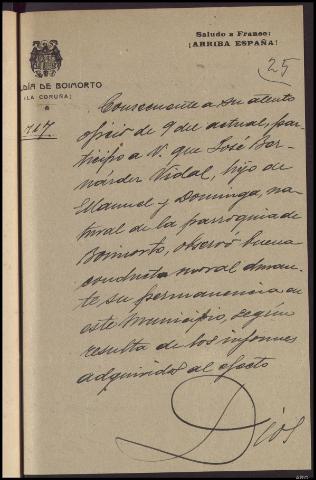 Saludo a Franco:
¡ARRIBA ESPAÑA!
25
LDÍA DE BOIMORTO
(LA CORUÑA)
717.
Consecuente a su atento
oficio de 9 del actual, par-
ticipo a V. que José Ber-
nárdez Vidal, hijo de
Manuel y Dominga, na-
tural de la parroquia de
Boimorto, observó buena
conducta moral duran-
te su permanencia en
este Municipio, según
resulta de los informes
adquiridos al efecto
Dios